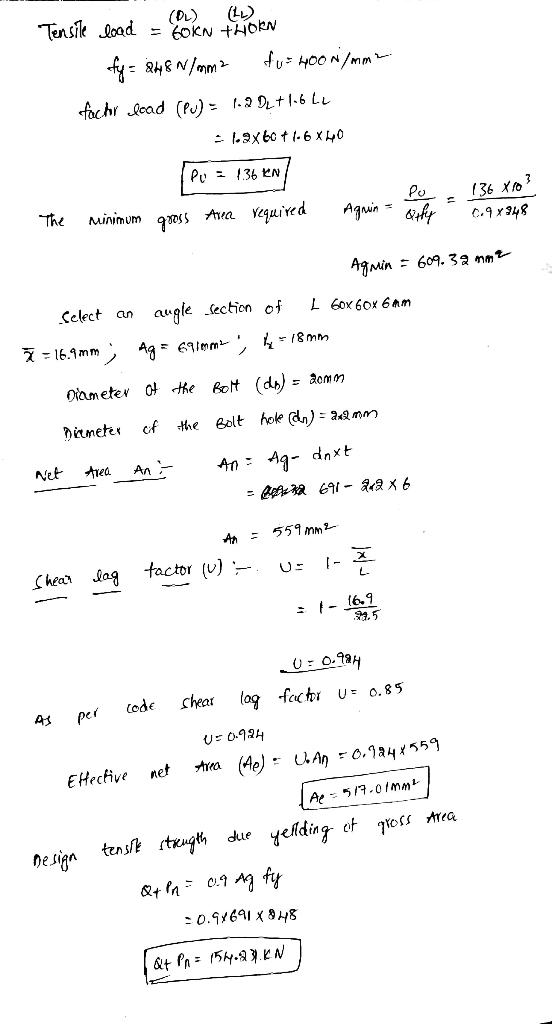 (DL) (LL)
Tensile load = 60KN + 40KN
fy = 248 N/mm² fu = 400 N/mm²
factor load (Pu) = 1.2 DL + 1.6 LL
= 1.2 x 60 + 1.6 x 40
Pu = 136 KN
The minimum gross Area required Agmin = Pu / Qtfy = 136 x 10³ / 0.9 x 248
Agmin = 609.32 mm²
Select an angle section of L 60x60x6mm
x̄ = 16.9mm ; Ag = 691mm² ; = 18mm
Diameter of the Bolt (db) = 20mm
Diameter of the Bolt hole (dn) = 22mm
Net Area An :- An = Ag - dn x t
= 691 - 22 x 6
An = 559 mm²
Shear lag factor (U) :- U = 1 - x̄ / L
= 1 - 16.9 / 22.5
U = 0.924
As per code shear lag factor U = 0.85
U = 0.924
Effective net Area (Ae) = U.An = 0.924 x 559
Ae = 517.01mm²
Design tensile strength due yeilding of gross Area
Qt Pn = 0.9 Ag fy
= 0.9 x 691 x 248
Qt Pn = 154.23 KN